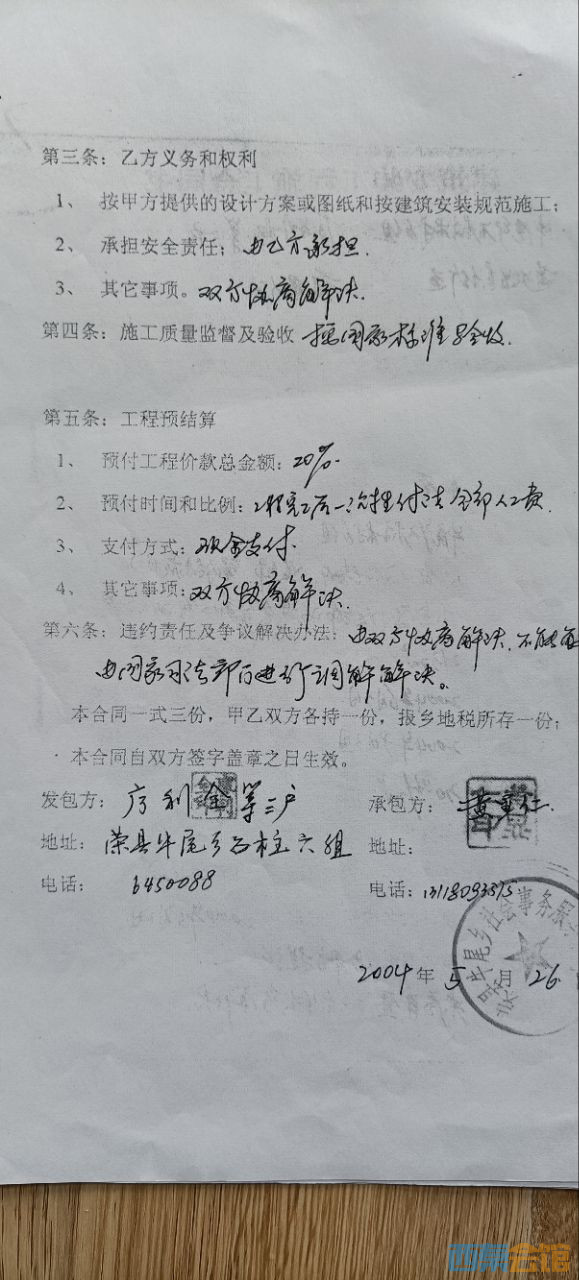 第三条：乙方义务和权利
1、 按甲方提供的设计方案或图纸和按建筑安装规范施工；
2、 承担安全责任；由乙方承担.
3、 其它事项。双方协商解决.
第四条：施工质量监督及验收 按国家标准验收.
第五条：工程预结算
1、 预付工程价款总金额：20%.
2、 预付时间和比例：工程完工后一次性付清全部人工费.
3、 支付方式：现金支付.
4、 其它事项：双方协商解决.
第六条：违约责任及争议解决办法：由双方协商解决.不能
由国家司法部门进行调解解决。
本合同一式三份，甲乙双方各持一份，报乡地税所存一份；
本合同自双方签字盖章之日生效。
发包方： 利金等三户
承包方：
地址：荣县牛尾乡石柱六组
地址：
电话： 6450088
电话：
2004年5月26
牛尾乡社会事务
西幕会馆